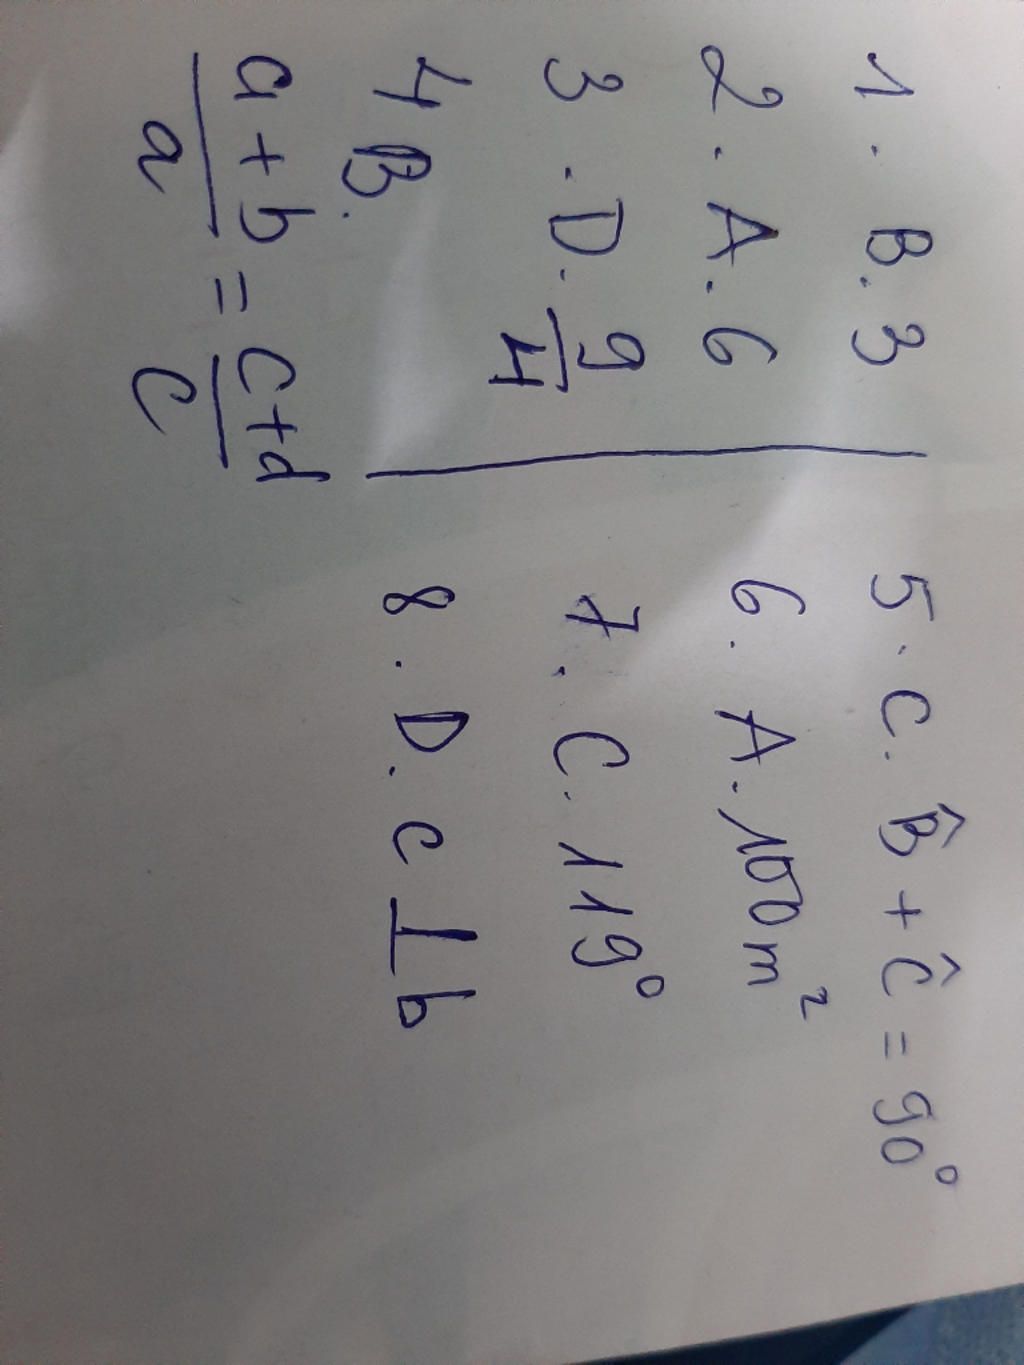 1. B. 3
2. A. 6
3. D. 9/4
4 B.
a+b/a = c+d/c
5. C. B̂ + Ĉ = 90°
6. A. 100m²
7. C. 119°
8. D. c ⊥ b